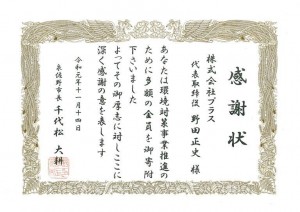 感謝状
株式会社プラス
代表取締役 野田正史 様
あなたは環境対策事業推進の
ために多額の金員を御寄附
下さいました
よってその御厚志に対しここに
深く感謝の意を表します
令和元年十一月十四日
泉佐野市長 千代松 大耕